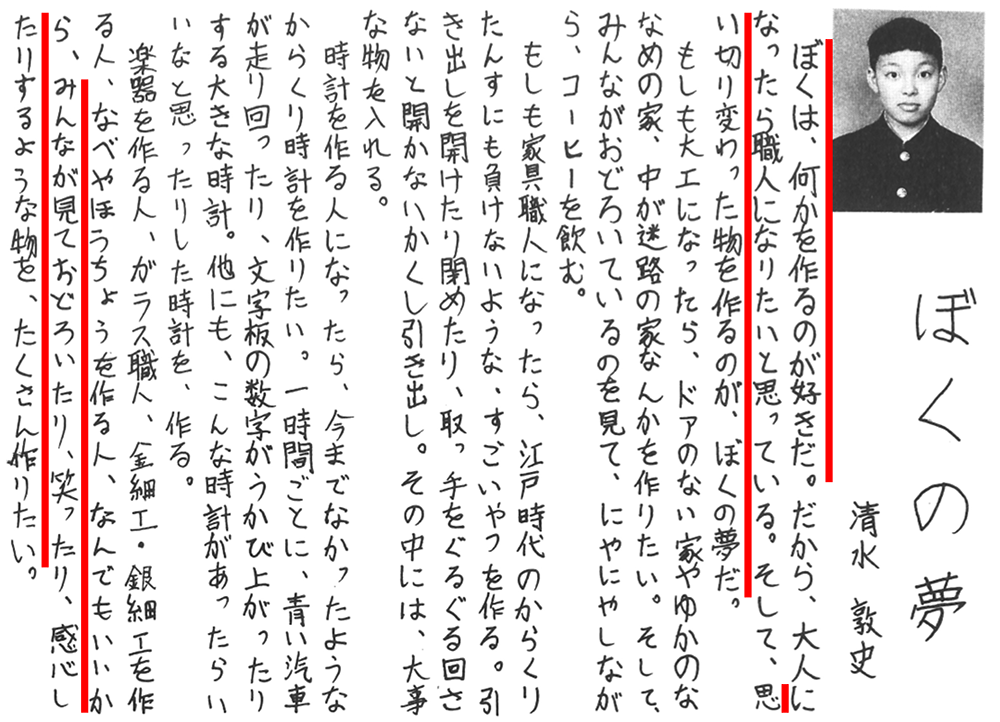 ぼくの夢
清水 敦史
ぼくは、何かを作るのが好きだ。だから、大人に
なったら職人になりたいと思っている。そして、思
い切り変わった物を作るのが、ぼくの夢だ。
もしも大工になったら、ドアのない家やゆかのな
なめの家、中が迷路の家なんかを作りたい。そして、
みんながおどろいているのを見て、にやにやしなが
ら、コーヒーを飲む。
もしも家具職人になったら、江戸時代のからくり
たんすにも負けないような、すごいやつを作る。引
き出しを開けたり閉めたり、取っ手をぐるぐる回さ
ないと開かないかくし引き出し。その中には、大事
な物を入れる。
時計を作る人になったら、今までなかったような
からくり時計を作りたい。一時間ごとに、青い汽車
が走り回ったり、文字板の数字がうかび上がったり
する大きな時計。他にも、こんな時計があったらい
いなと思ったりした時計を、作る。
楽器を作る人、ガラス職人、金細工・銀細工を作
る人、なべやほうちょうを作る人、なんでもいいか
ら、みんなが見ておどろいたり、笑ったり、感心し
たりするような物を、たくさん作りたい。